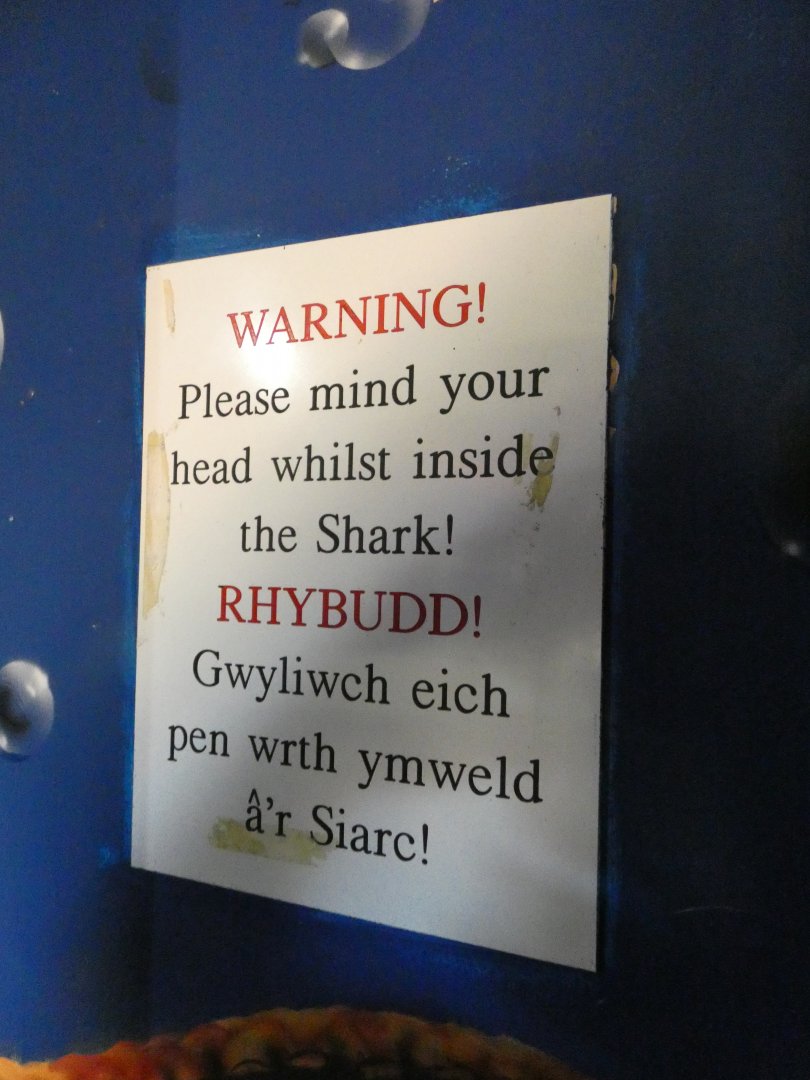 WARNING!
Please mind your
head whilst inside
the Shark!
RHYBUDD!
Gwyliwch eich
pen wrth ymweld
â'r Siarc!